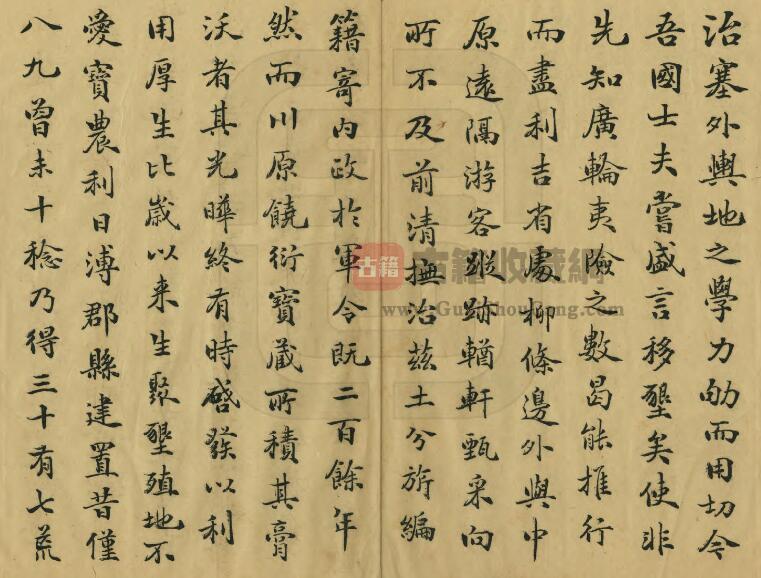 治塞外輿地之學力劬而用切今
吾國士夫嘗盛言移墾矣使非
先知廣輪夷險之數曷能推行
而盡利吉省處柳條邊外與中
原遠隔游客蹤跡輶軒甄采向
所不及前清撫治茲土分旂編
籍寄內政於軍令既二百餘年
然而川原饒衍寶藏所積其膏
沃者其光曄終有時啓發以利
用厚生比歲以来生聚墾殖地不
愛寶農利日溥郡縣建置昔僅
八九曾未十稔乃得三十有七荒
古籍
古籍收藏網
www.GuJiShouCang.Com